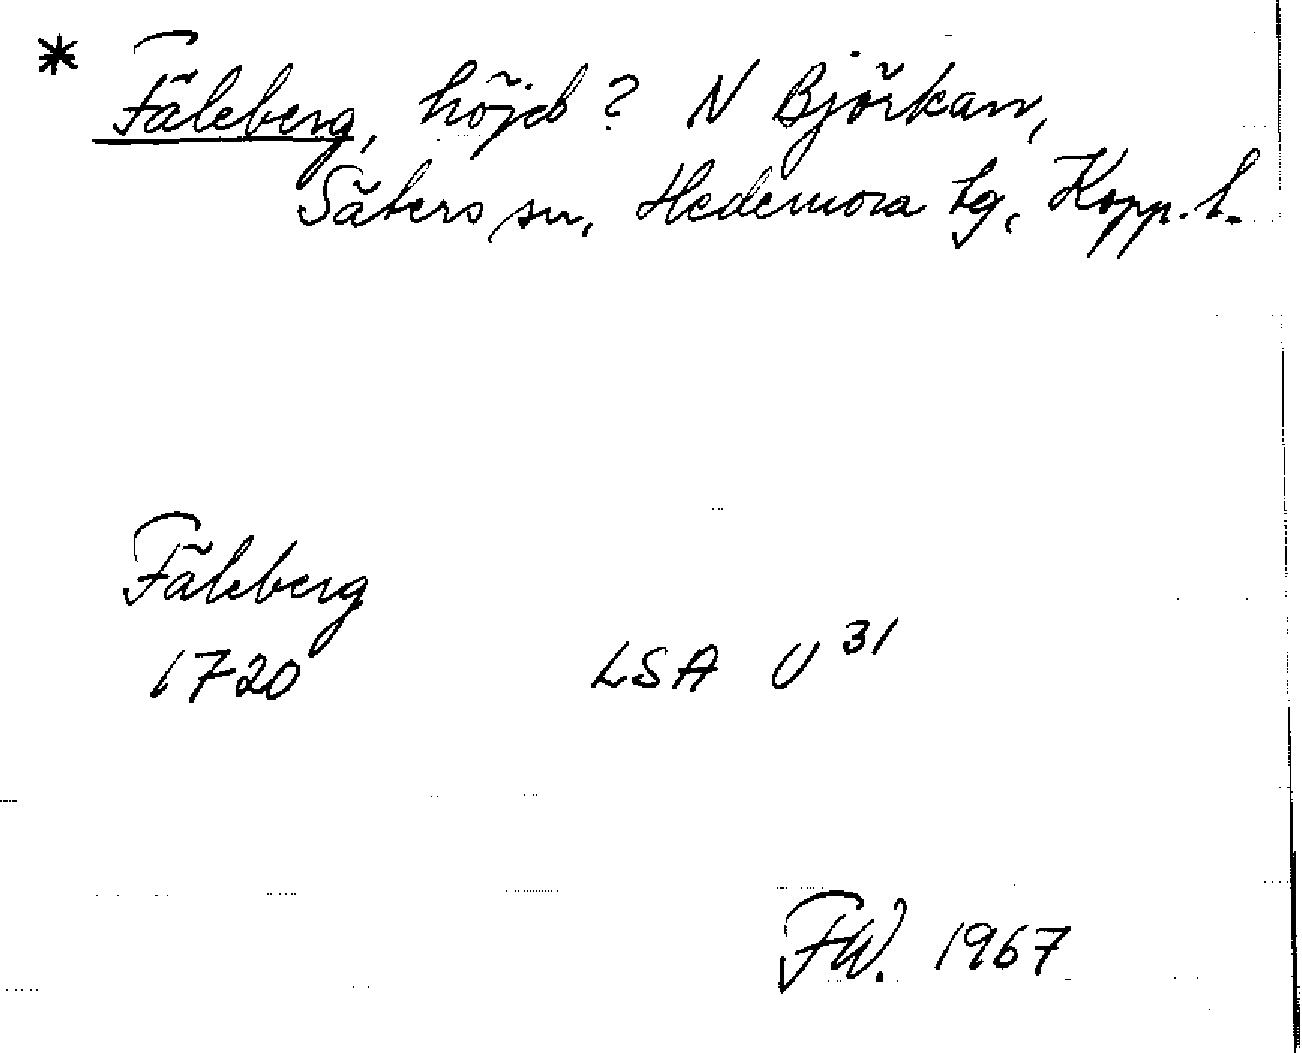 * Fäleberg, höjd? N Björkan,
Säters sn, Hedemora tg, Kopp. l.
Fäleberg
1720 LSA U 31
FW. 1967